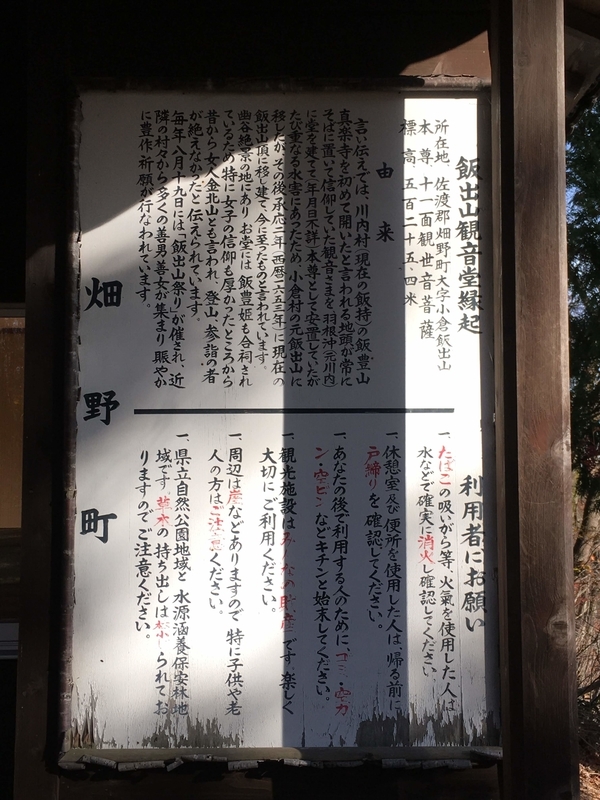 飯出山観音堂縁起
所在地 佐渡郡畑野町大字小倉飯出山
本尊 十一面観世音菩薩
標高 五百二十五.四米
由来
言い伝えでは、川内村(現在の飯持)の飯豊山
真楽寺を初めて開いたと言われる地頭が常に
そばに置いて信仰していた観音さまを羽根沖(元川内)
に堂を建てて(年月日不詳)本尊として安置していたが
たび重なる水害にあったため、小倉村の元飯出山に
移したが、その後承応二年(西暦一六五三年)に現在の
飯出山頂に移し建て、今に至ったものと言われています。
幽谷絶景の地にあり お堂には 飯豊姫も合祠され
ているため特に女子の信仰も厚かったところから
昔から女人金北山とも言われ、登山、参詣の者
が絶えなかったと伝えられています。
毎年八月十九日には「飯出山祭り」が催され、近
隣の村々から多くの善男善女が集まり賑やか
に豊作祈願が行なわれています。
利用者にお願い
一、たばこの吸いがら等、火氣を使用した人は
水などで確実に消火し確認してください。
一、休憩室及び便所を使用した人は、帰る前に
戸締りを確認してください。
一、あなたの後で利用する人のために、ゴミ・空カ
ン・空ビンなどキチンと始末してください。
一、観光施設はみんなの財産です。楽しく
大切にご利用ください。
一、周辺は崖などありますので 特に子供や老
人の方はご注意ください。
一、県立自然公園地域と 水源涵養保安林地
域です。草木の持ち出しは禁じられてお
りますのでご注意ください。
畑野町